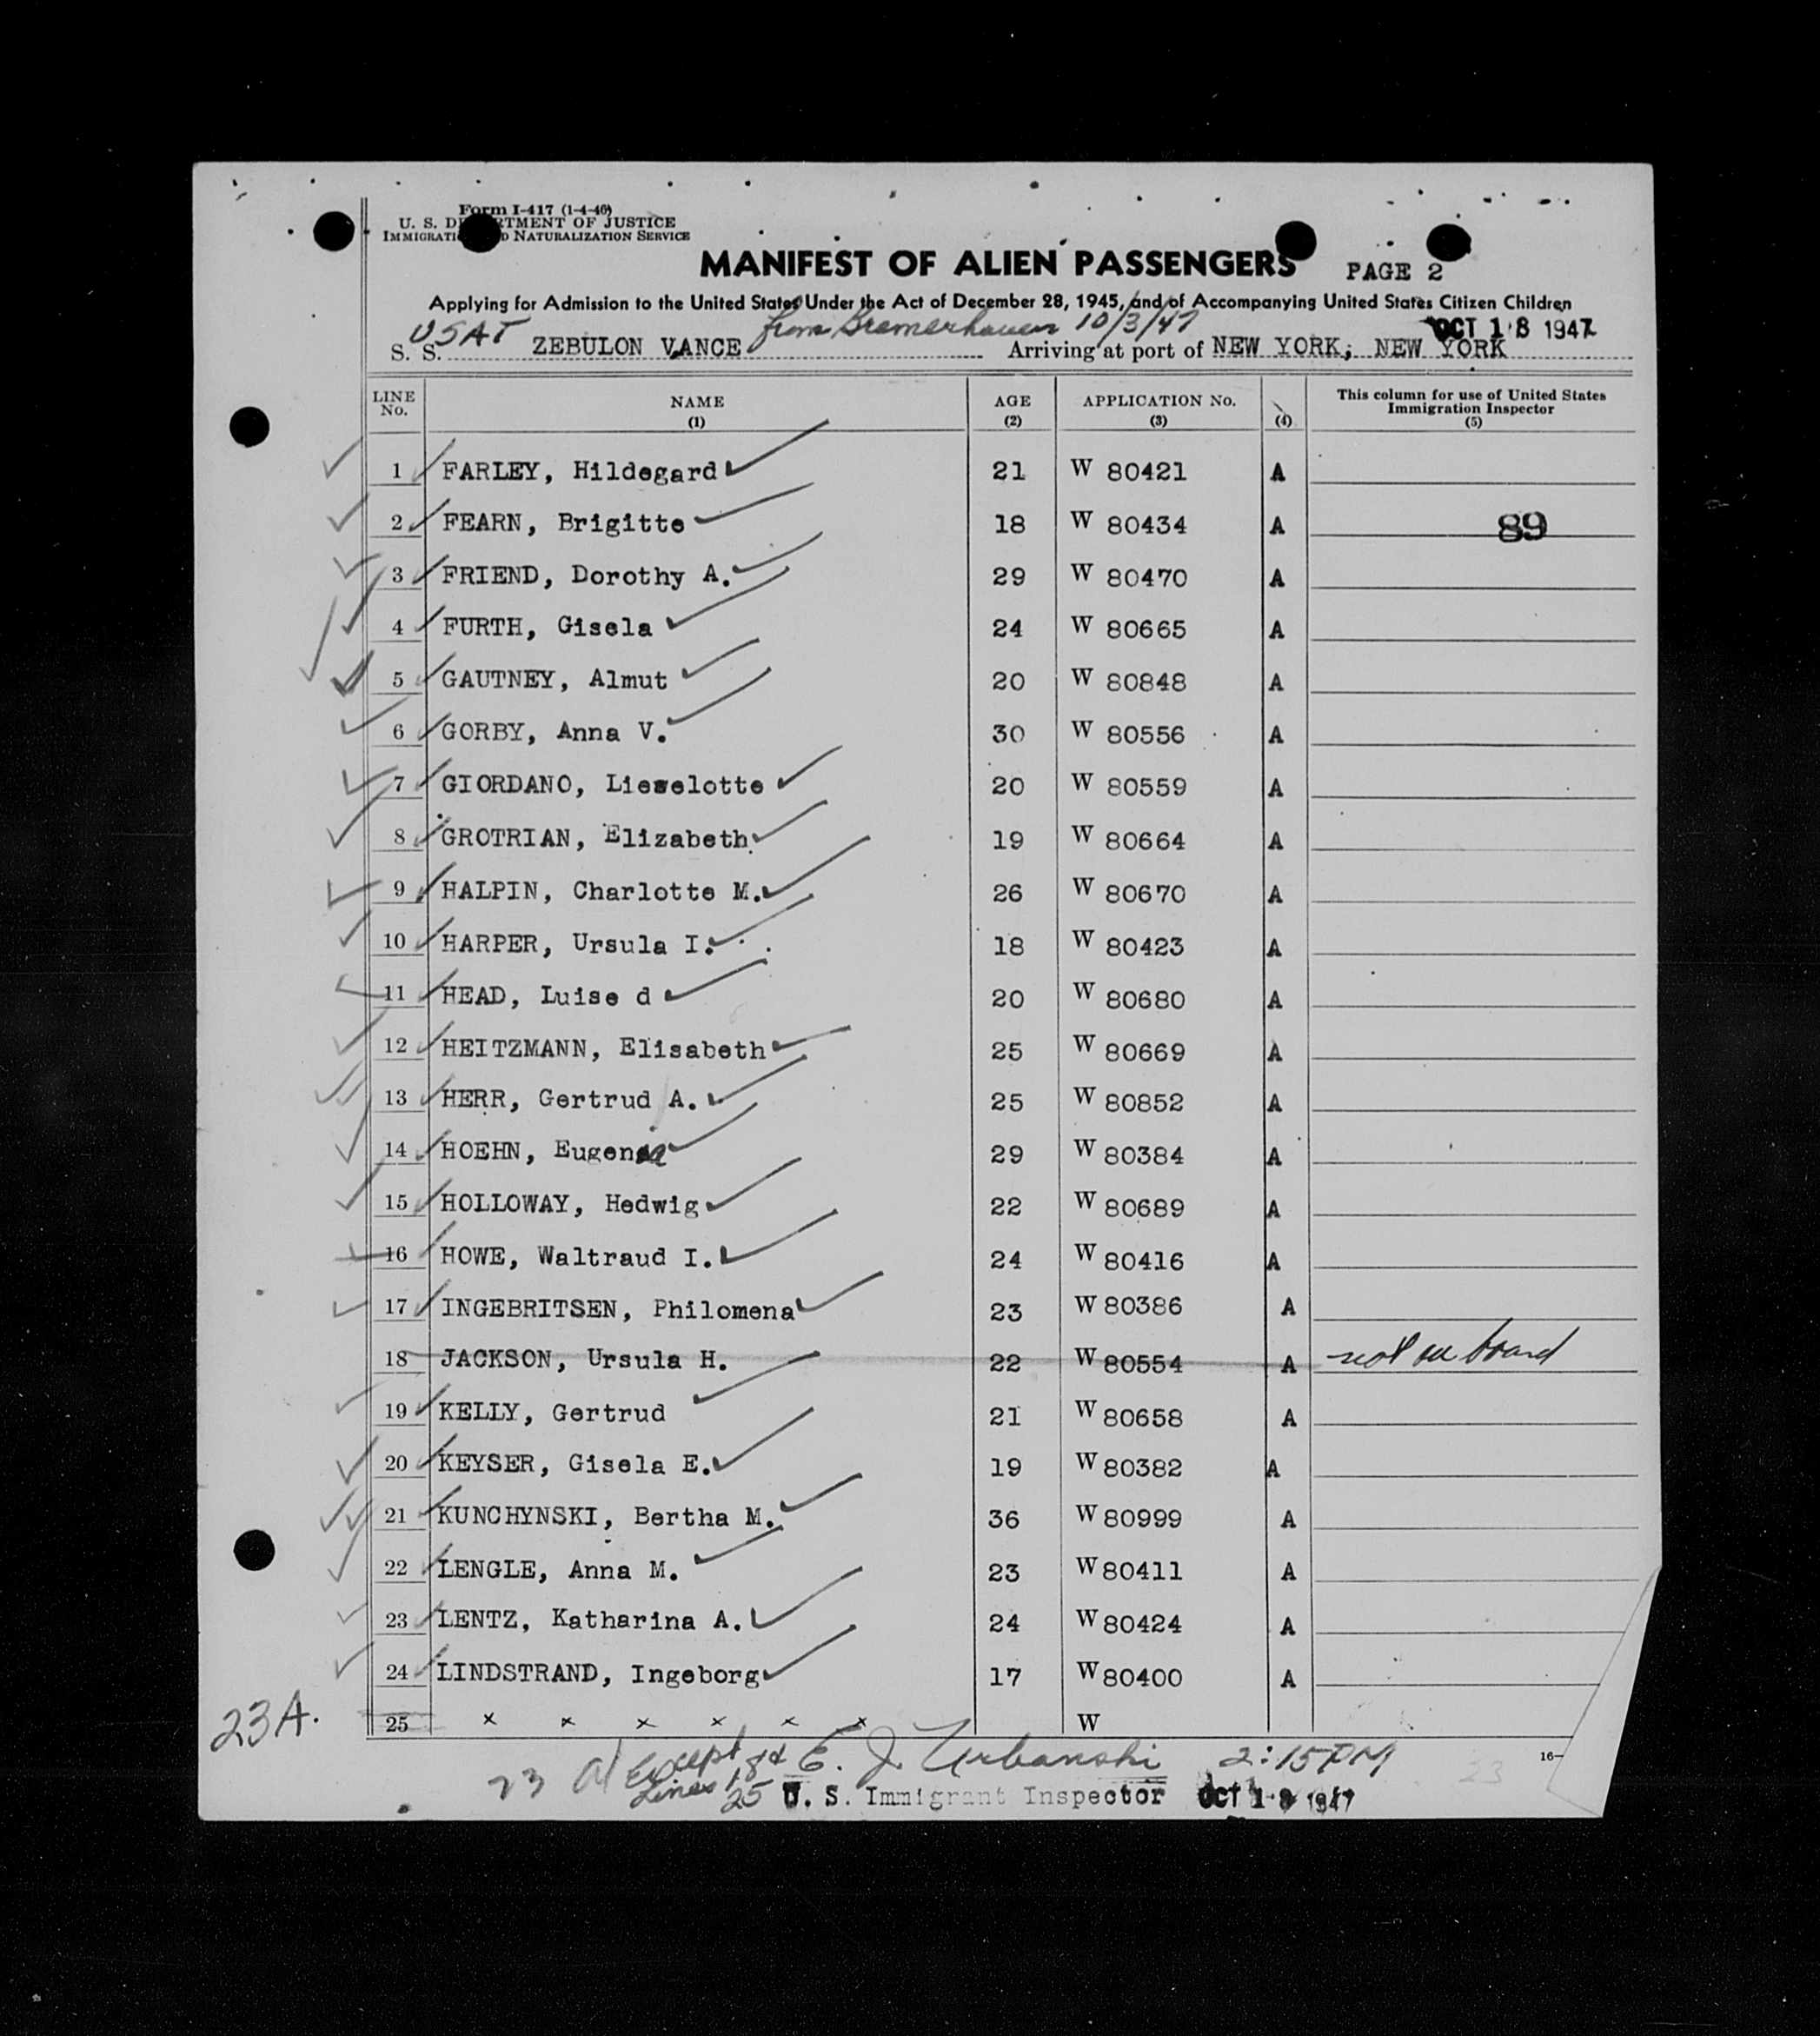 Form I-417 (1-4-46)
U. S. DEPARTMENT OF JUSTICE
IMMIGRATION AND NATURALIZATION SERVICE
MANIFEST OF ALIEN PASSENGERS PAGE 2
Applying for Admission to the United States Under the Act of December 28, 1945, and of Accompanying United States Citizen Children
USAT from Bremerhaven 10/3/47 OCT 18 1947
S. S. ZEBULON VANCE Arriving at port of NEW YORK, NEW YORK
LINE No. NAME (1) AGE (2) APPLICATION No. (3) (4) This column for use of United States Immigration Inspector (5)
1 FARLEY, Hildegard 21 W 80421 A
2 FEARN, Brigitte 18 W 80434 A 89
3 FRIEND, Dorothy A. 29 W 80470 A
4 FURTH, Gisela 24 W 80665 A
5 GAUTNEY, Almut 20 W 80848 A
6 GORBY, Anna V. 30 W 80556 A
7 GIORDANO, Lieselotte 20 W 80559 A
8 GROTRIAN, Elizabeth 19 W 80664 A
9 HALPIN, Charlotte M. 26 W 80670 A
10 HARPER, Ursula I. 18 W 80423 A
11 HEAD, Luise d 20 W 80680 A
12 HEITZMANN, Elisabeth 25 W 80669 A
13 HERR, Gertrud A. 25 W 80852 A
14 HOEHN, Eugenia 29 W 80384 A
15 HOLLOWAY, Hedwig 22 W 80689 A
16 HOWE, Waltraud I. 24 W 80416 A
17 INGEBRITSEN, Philomena 23 W 80386 A
18 JACKSON, Ursula H. 22 W 80554 A not on board
19 KELLY, Gertrud 21 W 80658 A
20 KEYSER, Gisela E. 19 W 80382 A
21 KUNCHYNSKI, Bertha M. 36 W 80999 A
22 LENGLE, Anna M. 23 W 80411 A
23 LENTZ, Katharina A. 24 W 80424 A
24 LINDSTRAND, Ingeborg 17 W 80400 A
23A.
25 x x x x x x W
23 Al Except Lines 18 & 25 E. J. Urbanski 2:15 PM 23 16-
U. S. Immigrant Inspector OCT 18 1947